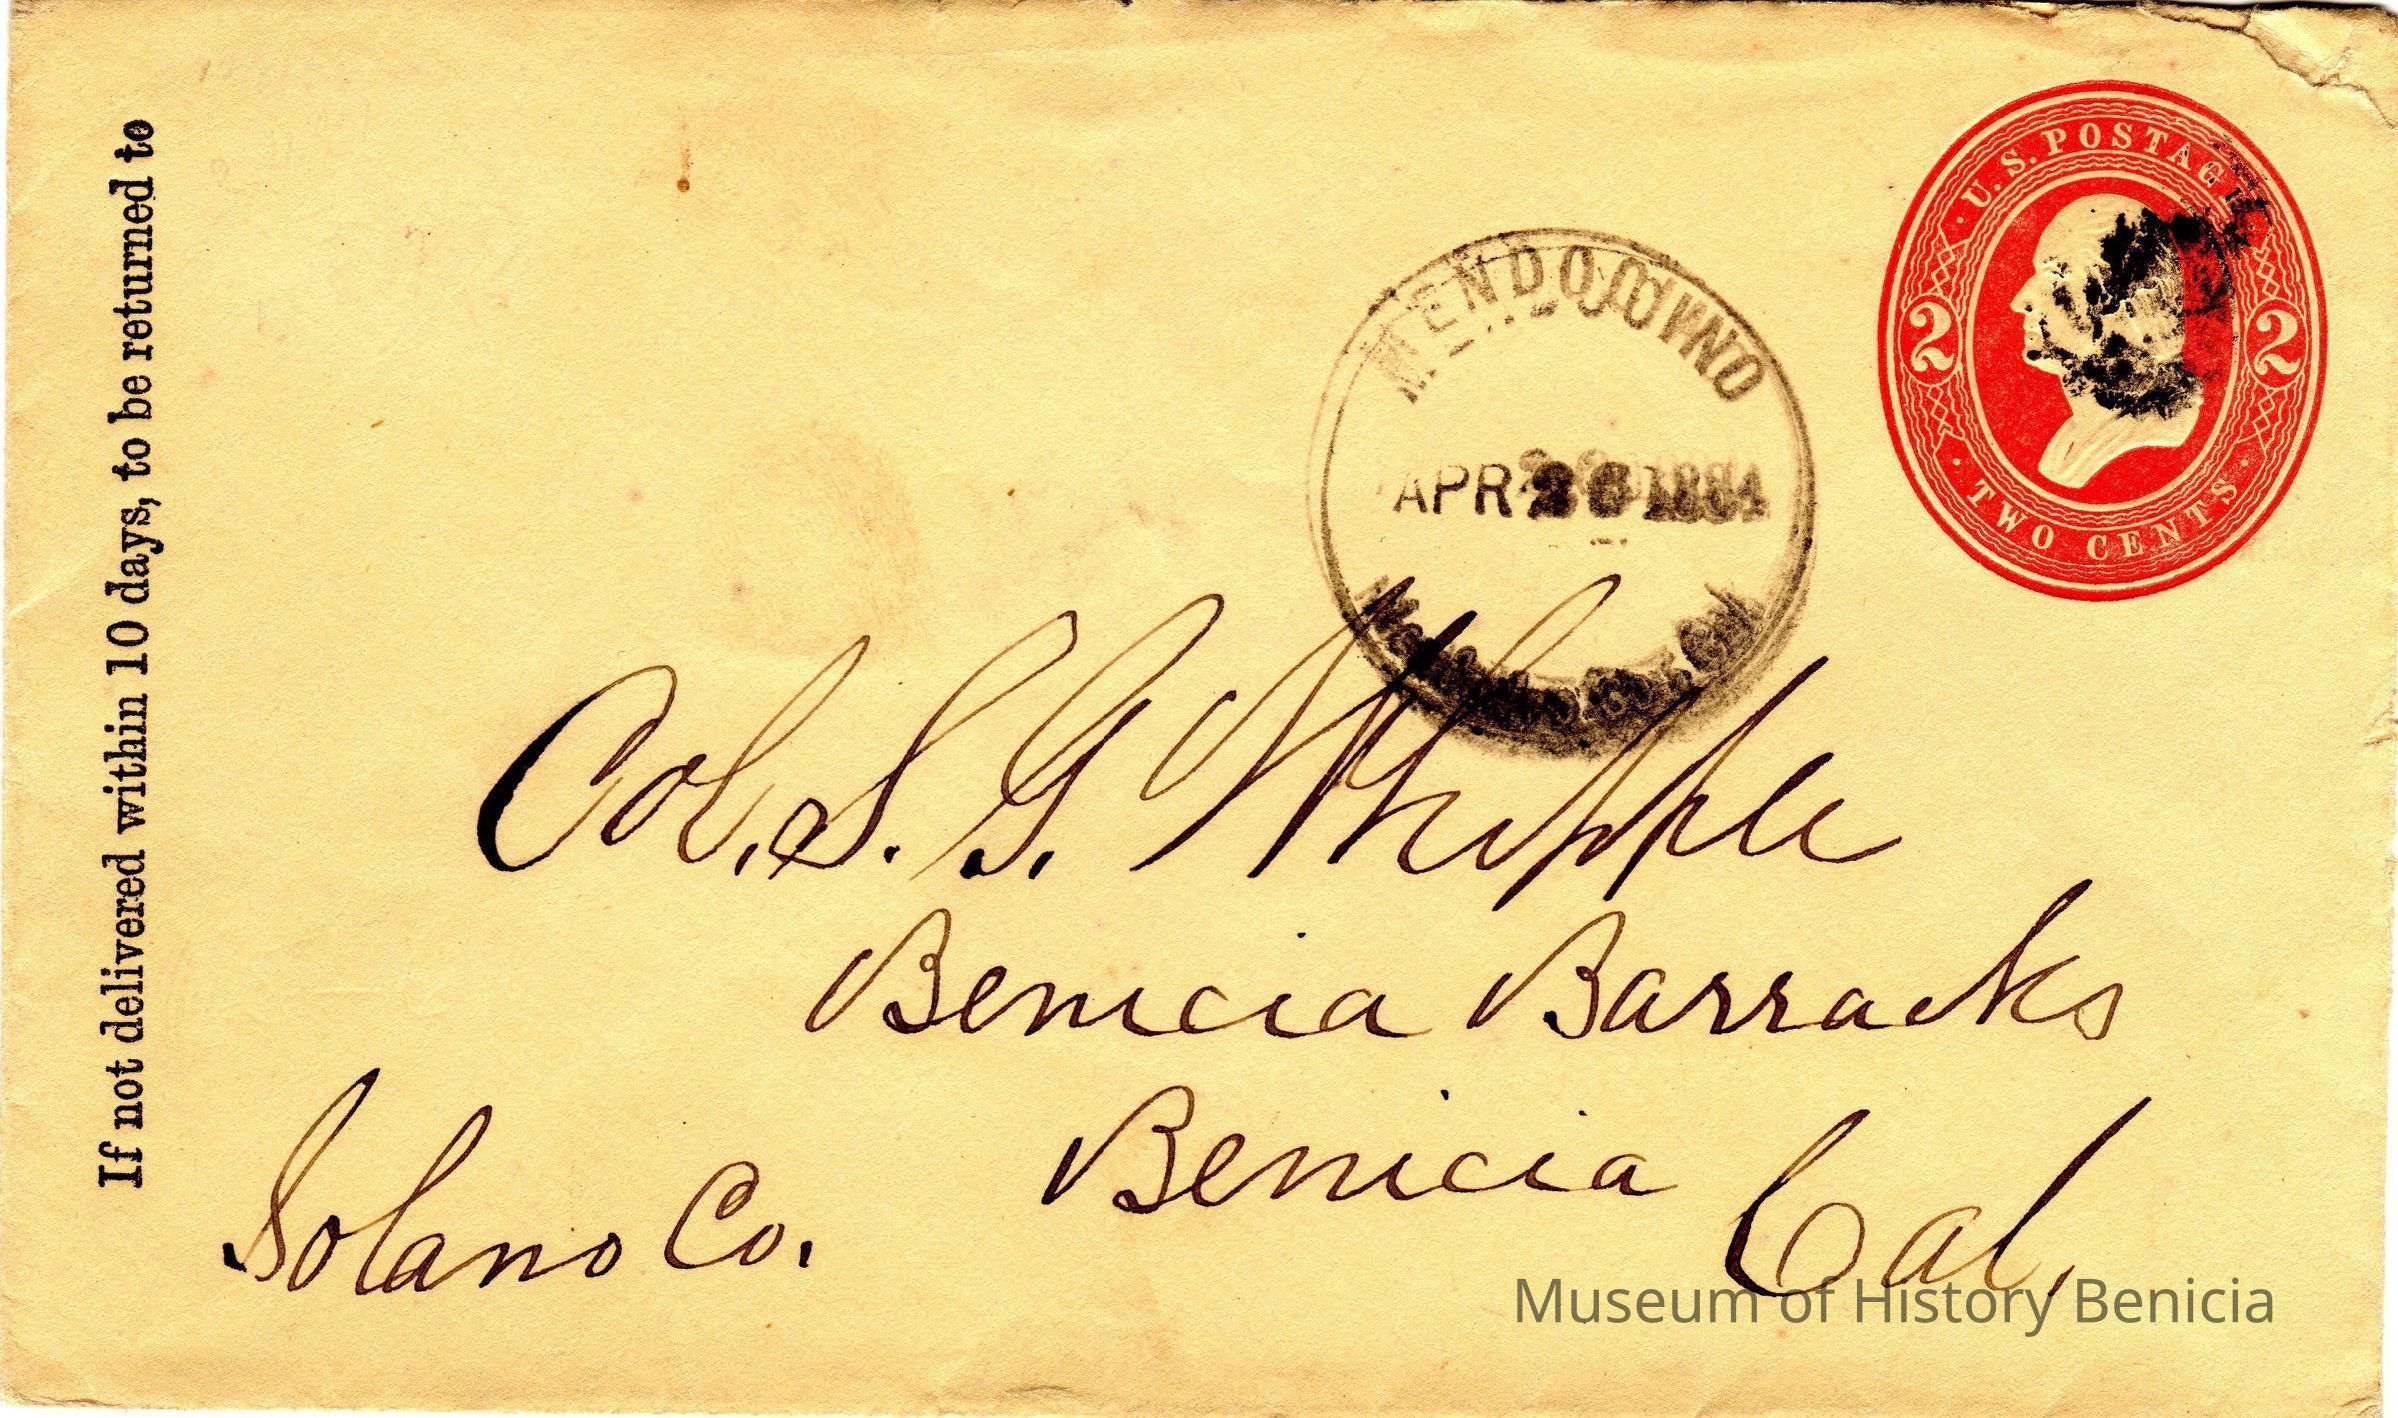 If not delivered within 10 days, to be returned to
U.S. POSTAGE
2 2
TWO CENTS
MENDOCINO
APR 26 1884
Col. S. G. Whipple
Benicia Barracks
Benicia
Cal.
Solano Co.
Museum of History Benicia